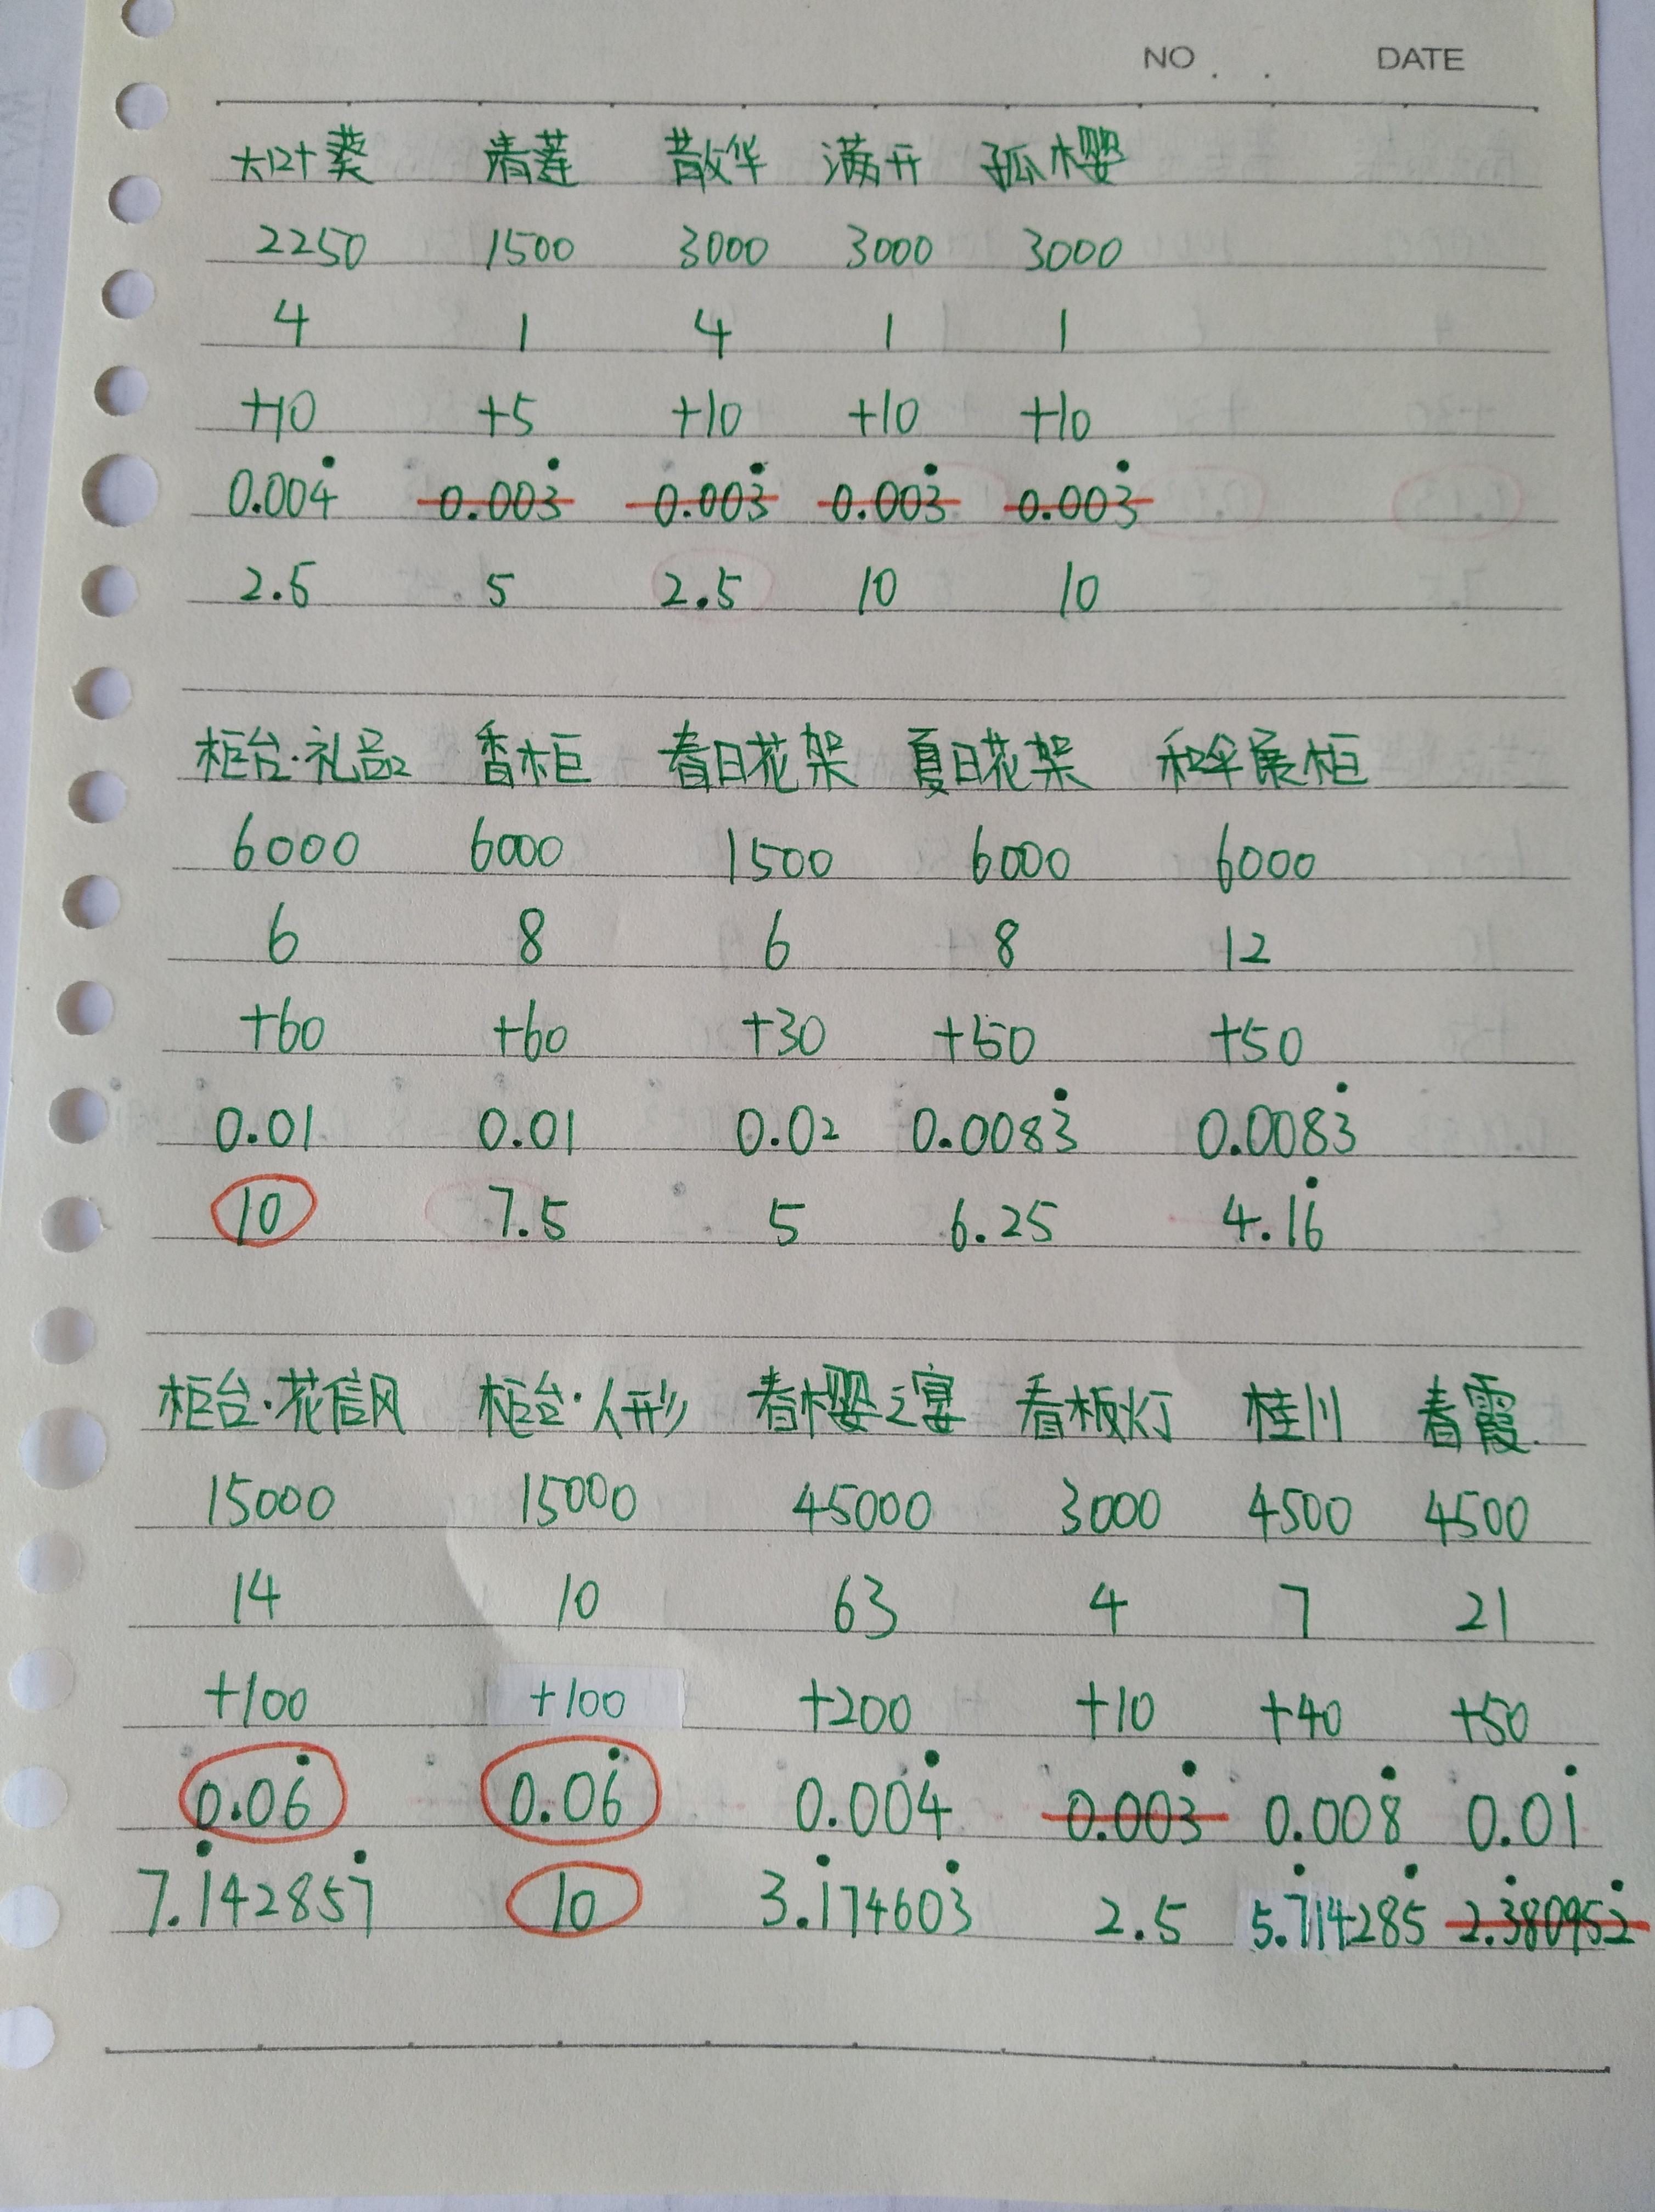 NO . . DATE
大叶葵 清莲 散华 满开 孤樱
2250 1500 3000 3000 3000
4 1 4 1 1
+10 +5 +10 +10 +10
0.004̇ 0.003̇ 0.003̇ 0.003̇ 0.003̇
2.5 5 2.5 10 10
柜台·礼品 香柜 春日花架 夏日花架 和伞展柜
6000 6000 1500 6000 6000
6 8 6 8 12
+60 +60 +30 +50 +50
0.01 0.01 0.02 0.0083̇ 0.0083̇
10 7.5 5 6.25 4.16̇
柜台·花信风 柜台·人形 春樱之宴 看板灯 桂川 春霞
15000 15000 45000 3000 4500 4500
14 10 63 4 7 21
+100 +100 +200 +10 +40 +50
0.06̇ 0.06̇ 0.004̇ 0.003̇ 0.008̇ 0.01̇
7.1̇42857̇ 10 3.1̇74603̇ 2.5 5.7̇14285̇ 2.3̇80952̇